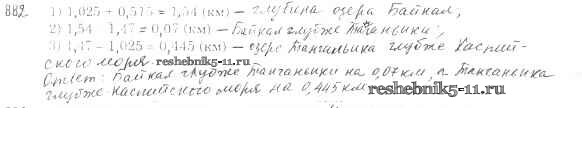 882. 1) 1,025 + 0,515 = 1,54 (км) – глубина озера Байкал;
2) 1,54 – 1,47 = 0,07 (км) – Байкал глубже Танганьики;
3) 1,47 – 1,025 = 0,445 (км) – озеро Танганьика глубже Каспий-
ского моря. reshebnik5-11.ru
Ответ: Байкал глубже Танганьики на 0,07 км, а Танганьика
глубже Каспийского моря на 0,445 км reshebnik5-11.ru